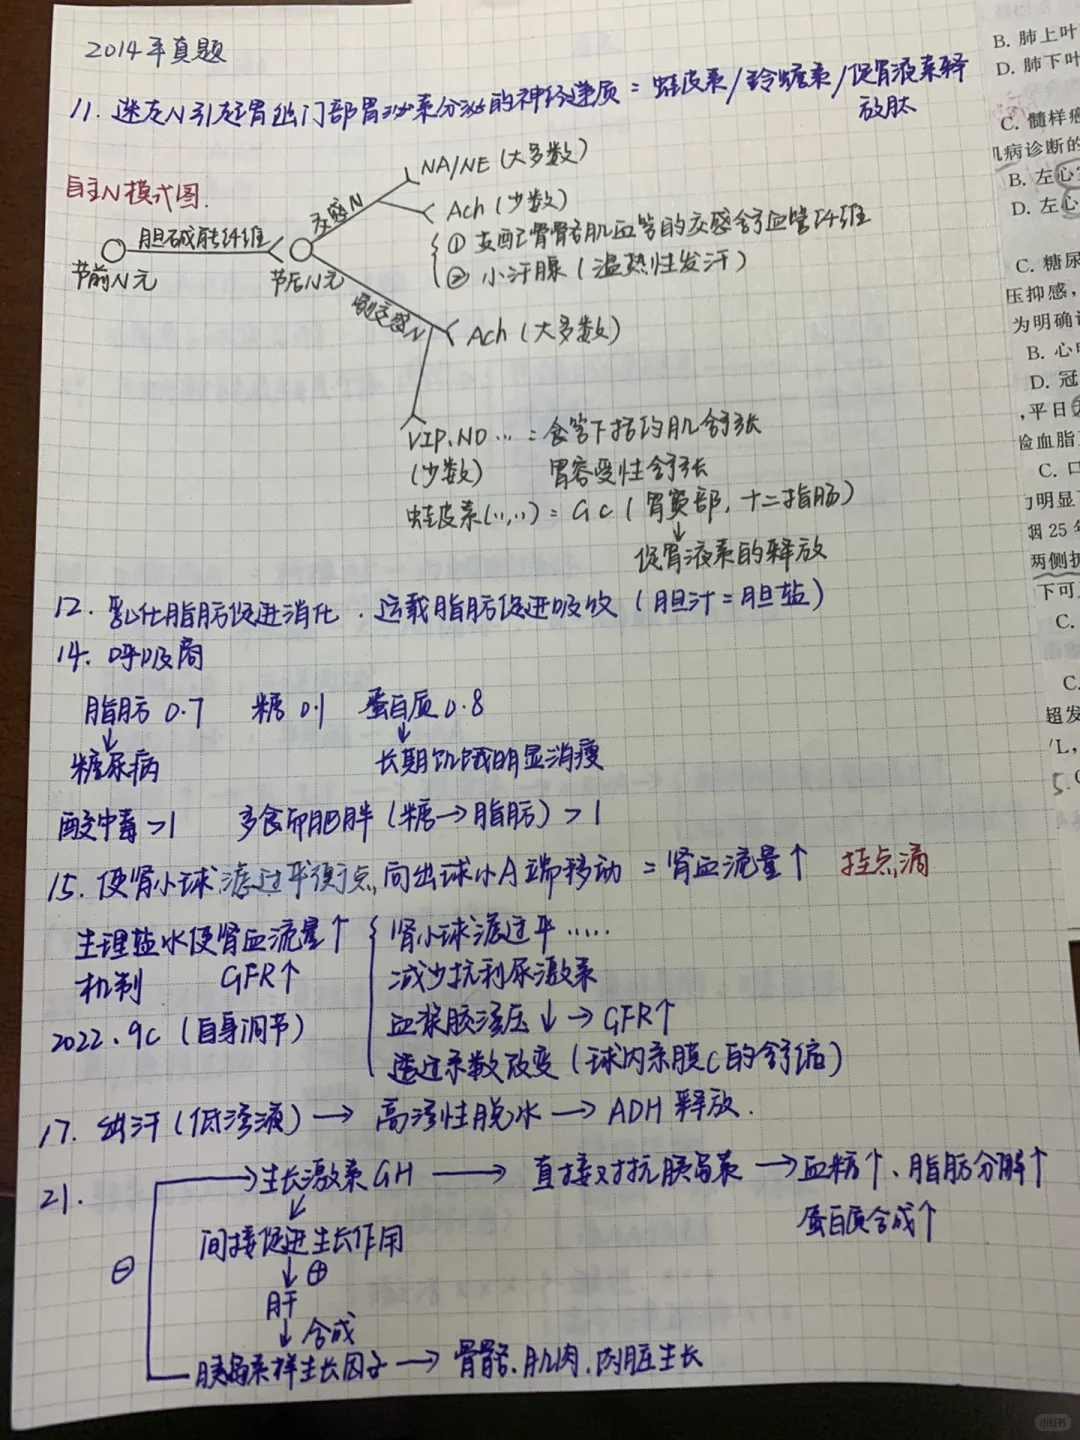 2014年真题
11. 迷走N引起胃幽门部胃泌素分泌的神经递质 = 蛙皮素/铃蟾素/促胃液素释
放肽
自主N模式图.
节前N元
胆碱能纤维
节后N元
交感N
NA/NE (大多数)
Ach (少数)
① 支配骨骼肌血管的交感舒血管纤维
② 小汗腺 (温热性发汗)
副交感N
Ach (大多数)
VIP.NO … = 食管下括约肌舒张
(少数) 胃容受性舒张
蛙皮素(‥,‥) = GC (胃窦部, 十二指肠)
↓
促胃液素的释放
12. 乳化脂肪促进消化. 运载脂肪促进吸收 (胆汁=胆盐)
14. 呼吸商
脂肪 0.7 糖 0.1 蛋白质 0.8
↓ ↓
糖尿病 长期饥饿明显消瘦
酸中毒 >1 多食而肥胖 (糖→脂肪) >1
15. 使肾小球滤过平衡点向出球小A端移动 = 肾血流量↑ 挂点滴
生理盐水使肾血流量↑
机制 GFR↑
2022.9C (自身调节)
肾小球滤过平……
减少抗利尿激素
血浆胶渗压↓ → GFR↑
滤过系数改变 (球内系膜C的舒缩)
17. 出汗 (低渗液) → 高渗性脱水 → ADH释放.
21. 生长激素GH → 直接对抗胰岛素 → 血糖↑、脂肪分解↑
蛋白质合成↑
↓
间接促进生长作用
↓ ⊕
⊖
肝
↓ 合成
胰岛素样生长因子 → 骨骼、肌肉、内脏生长
B. 肺上叶
D. 肺下叶
C. 髓样癌
几病诊断的
B. 左心
D. 左心
C. 糖尿
压抑感,
为明确
B. 心
D. 冠
,平日
险血脂
C. 口
明显
烟 25
两侧
下可
C.
C.
超发
/L,
小红书